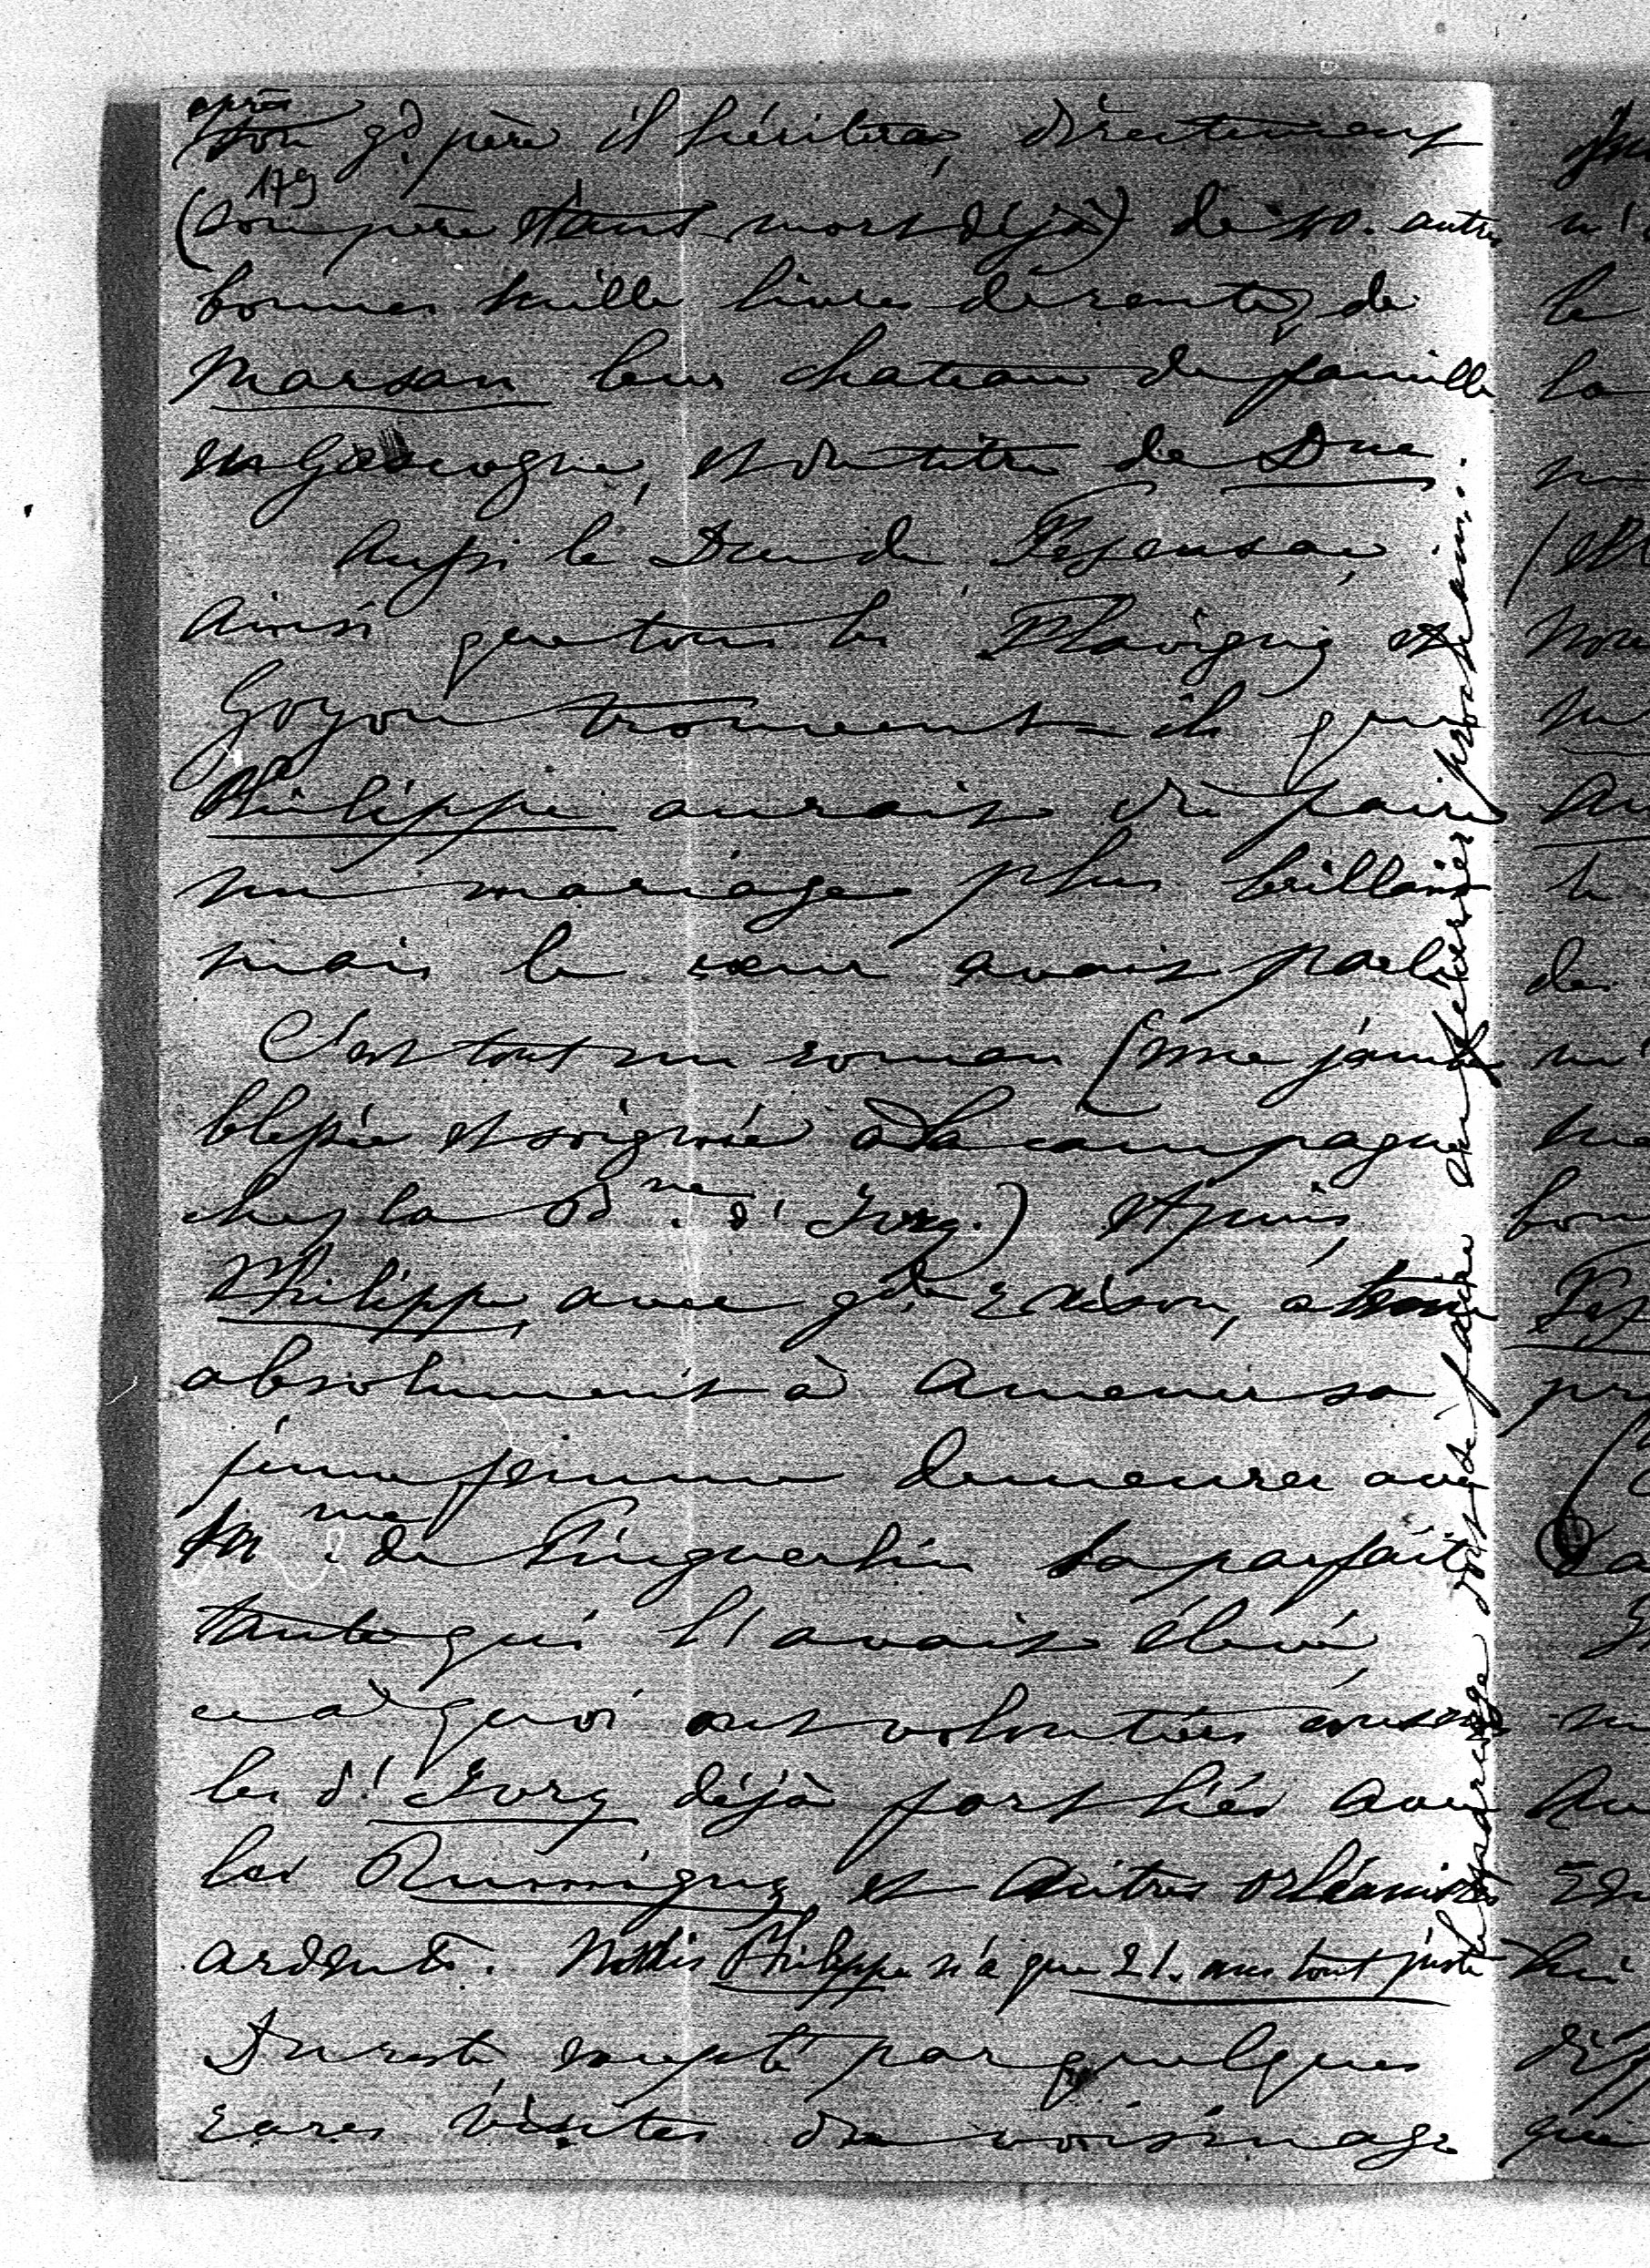 après
son gd. père il héritera, directement
179
(son père étant mort déjà) de 40. autres
bonnes mille livres de rente, de
Marsan leur chateau de famille
en Gascogne, et du titre de Duc.
Aussi le Duc de Fezensac,
ainsi que tous les Flavigny et
Goyon trouvent-ils que
Philippe aurait dû faire
un mariage plus brillant
mais le cœur avait parlé
C'est tout un roman (une jambe
blessée et soignée à la campagne
chez la Bd. ne. d'Ivry.) Et puis
Philippe, avec gde. raison, a tenu
absolument à amener sa
jeune femme demeurer avec
Mme. de Puiguerlin sa parfaite
tante qui l'avait élevé
ce à quoi ont volontiers consenti
les d'Ivry déjà fort liés avec
les Rumigny et autres orléanistes
ardents. Mais Philippe n'a que 21. ans tout juste
Du reste excepté par quelques
rares visites du voisinage
le mariage doit se faire en février prochain.